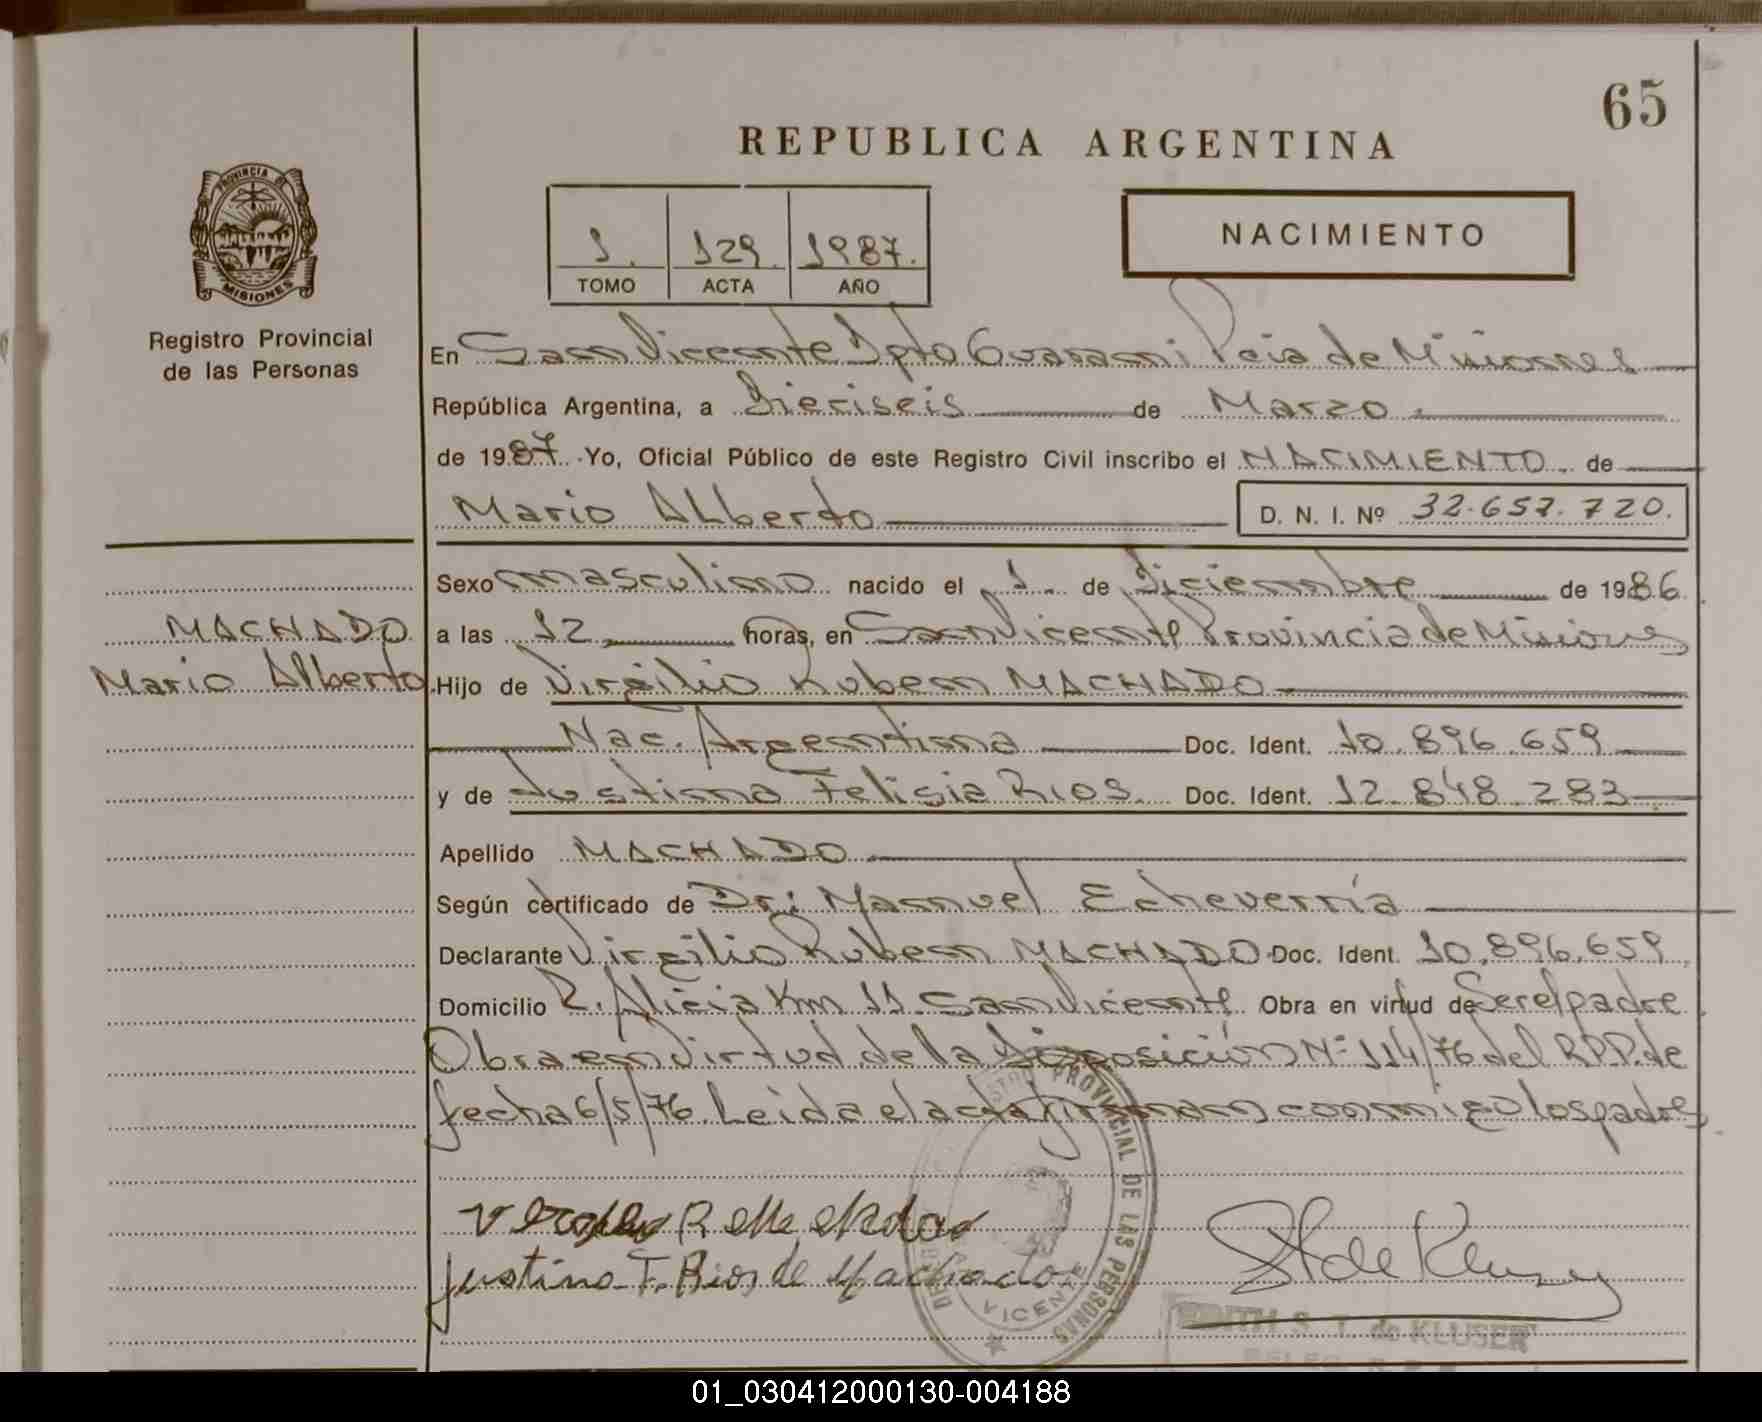 65
REPUBLICA ARGENTINA
PROVINCIA DE
MISIONES
Registro Provincial
de las Personas
1. 129. 1987.
TOMO ACTA AÑO
NACIMIENTO
En San Vicente Dpto Guarani Pcia de Misiones
República Argentina, a Dieciseis de Marzo.
de 1987. Yo, Oficial Público de este Registro Civil inscribo el NACIMIENTO. de
Mario Alberto D. N. I. Nº 32.657.720.
Sexo masculino nacido el 1 de Diciembre de 1986
MACHADO a las 12 horas, en San Vicente Provincia de Misiones
Mario Alberto Hijo de Virgilio Ruben MACHADO
Nac. Argentina Doc. Ident. 10.896.659
y de Justina Felisia Rios. Doc. Ident. 12.848.283
Apellido MACHADO
Según certificado de Dr: Manuel Echeverría
Declarante Virgilio Ruben MACHADO Doc. Ident. 10.896.659
Domicilio P. Alicia Km 11. San Vicente. Obra en virtud de Ser el padre
Obra en virtud de la Disposición Nº 114/76 del R.P.P. de
fecha 6/5/76. Leida el acta firman conmigo los padres
PROVINCIAL DE LAS PERSONAS
VICENTE
Justina F. Rios de Machado
ST de Kluser
EDITH S. T. de KLUSER
01_030412000130-004188